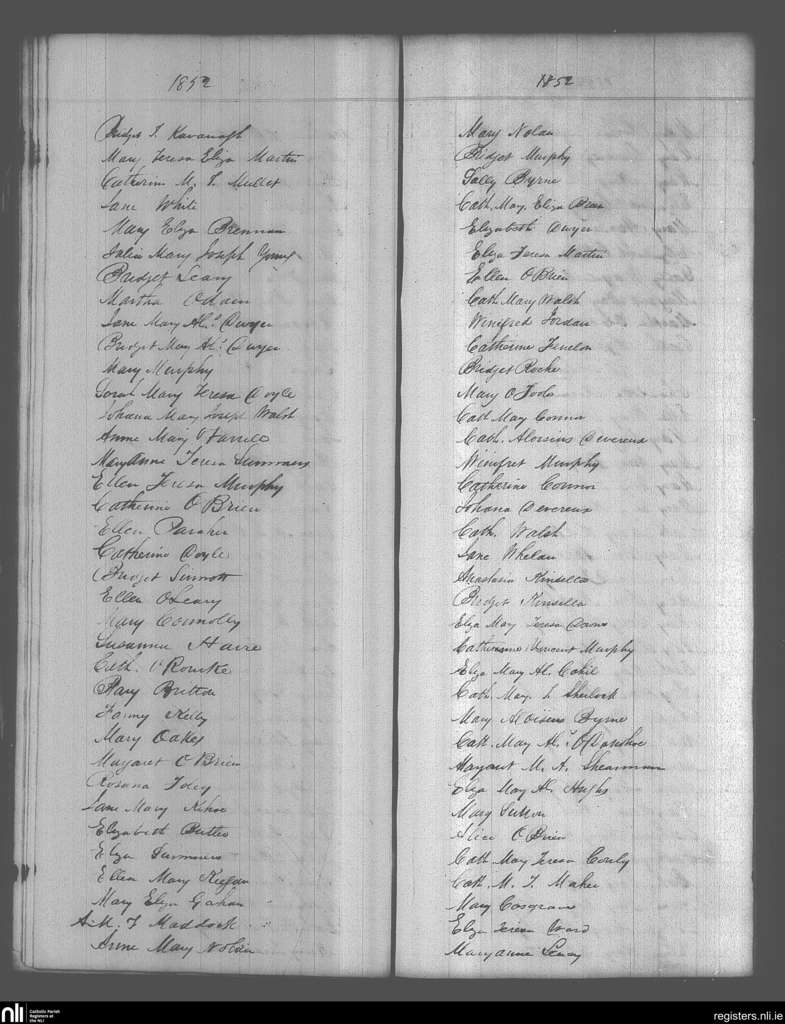 1852
Bridget T. Kavanagh
Mary Teresa Eliza Martin
Catherine M. T. Mullet
Jane White
Mary Eliza Brennan
Julia Mary Joseph
Bridget Leary
Martha
Jane Mary Al.s Dwyer
Bridget Mary Al.s Dwyer
Mary Murphy
Sarah Mary Teresa Doyle
Johana Mary Joseph Walsh
Anne Mary O'Farrell
Maryanne Teresa Summers
Ellen Teresa Murphy
Catherine O Brien
Ellen
Catherine Doyle
Bridget Sinnott
Ellen O Leary
Mary Connolly
Susanna Haire
Cath. O'Rourke
Mary Britton
Fanny Kelly
Mary Oakes
Margaret O Brien
Rosana Foley
Jane Mary Kehoe
Elizabeth Butler
Eliza
Ellen Mary Keegan
Mary Eliza Gahan
A. M. T Maddock
Anne Mary Nolan
1852
Mary Nolan
Bridget Murphy
Sally Byrne
Cath. Mary Eliza
Elizabeth Dwyer
Eliza Teresa Martin
Ellen O Brien
Cath Mary Walsh
Winifred Jordan
Catherine Fenelon
Bridget Roche
Mary O Toole
Cath Mary Connor
Cath. Aloysius Devereux
Winifret Murphy
Catherine Connor
Johana Devereux
Cath. Walsh
Jane Whelan
Anastasia Kinsella
Bridget Kinsella
Eliza Mary Teresa
Catherine Vincent Murphy
Eliza Mary Al. Cahil
Cath. Mary. L. Sherlock
Mary Aloisius Byrne
Cath. Mary Al.s O'Donohoe
Margaret M. A.
Eliza Mary Al. Hughs
Mary Sutton
Alice O Brien
Cath Mary Teresa
Cath. M. T. Maher
Mary Cosgrave
Eliza Teresa
Maryanne Leary
nli
Catholic Parish
Registers at
the NLI
registers.nli.ie